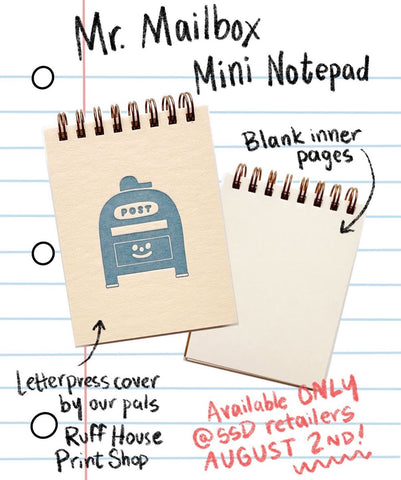 Mr. Mailbox
Mini Notepad
Blank inner
pages
POST
Letterpress cover
by our pals
Ruff House
Print Shop
Available ONLY
@ SSD retailers
AUGUST 2ND!